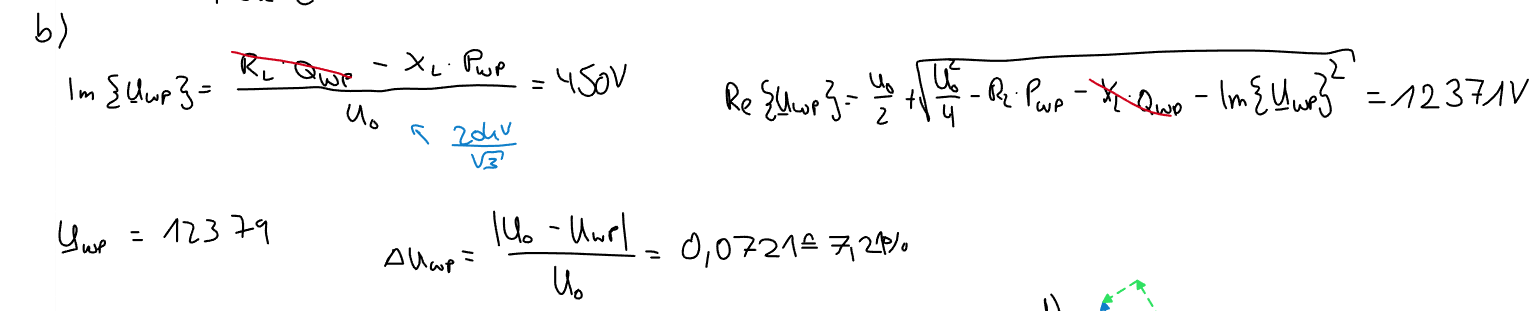 b)
Im {U_WP} = (R_L · Q_WP − X_L · P_WP) / U_0 = 450V
Re {U_WP} = U_0/2 + √(U_0²/4 − R_L · P_WP − X_L · Q_WP − Im{U_WP}²) = 12371V
20kV/√3
U_WP = 12379
ΔU_WP = |U_0 − U_WP| / U_0 = 0,0721 ≙ 7,21%